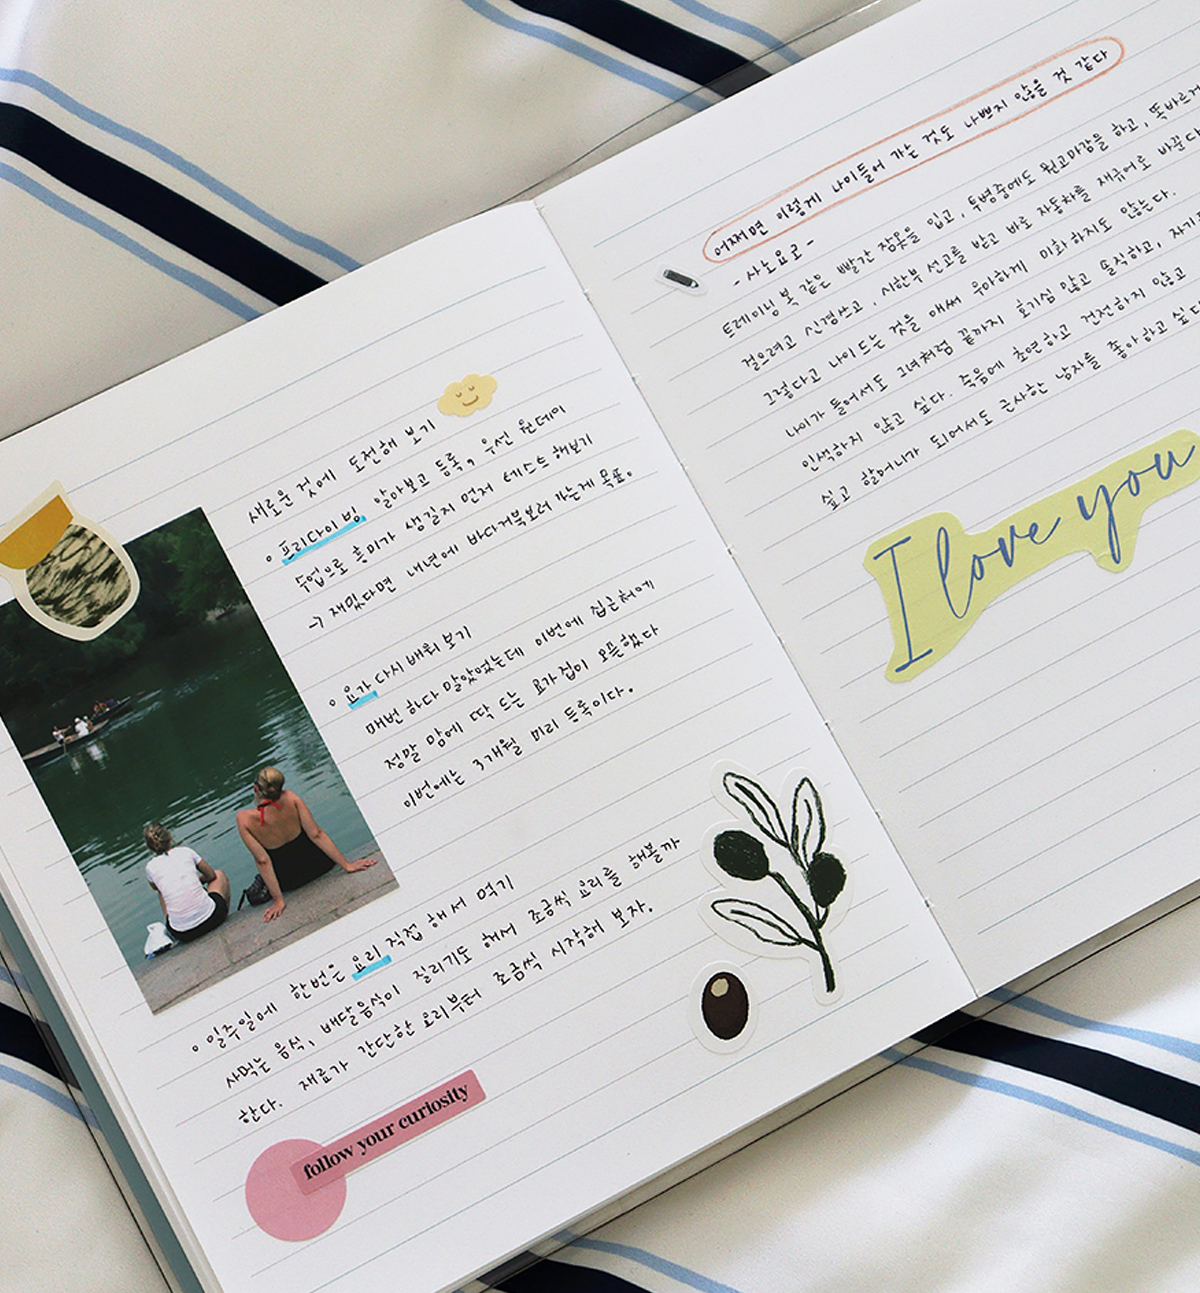 새로운 것에 도전해 보기
• 프리다이빙 알아보고 등록, 우선 원데이
수업으로 흥미가 생길지 먼저 테스트 해보기
→ 재밌다면 내년에 바다거북보러 가는게 목표.
• 요가 다시 배워 보기
매번 하다 말았었는데 이번에 집근처에
정말 맘에 딱 드는 요가집이 오픈했다
이번에는 3개월 미리 등록이다.
• 일주일에 한번은 요리 직접 해서 먹기
사먹는 음식, 배달음식이 질리기도 해서 조금씩 요리를 해볼까
한다. 재료가 간단한 요리부터 조금씩 시작해 보자.
follow your curiosity
어쩌면 이렇게 나이들어 가는 것도 나쁘지 않을 것 같다
- 사노요코 -
트레이닝 복 같은 빨간 잠옷을 입고, 투병중에도 원고마감을 하고, 똑바르게
걸으려고 신경쓰고, 시한부 선고를 받고 바로 자동차를 재규어로 바꾼다
그렇다고 나이 드는 것을 애써 우아하게 미화하지도 않는다.
나이가 들어서도 그녀처럼 끝까지 호기심 많고 솔직하고, 자기
인색하지 않고 싶다. 죽음에 초연하고 건전하지 않고
싶고 할머니가 되어서도 근사한 남자를 좋아하고 싶다
I love you